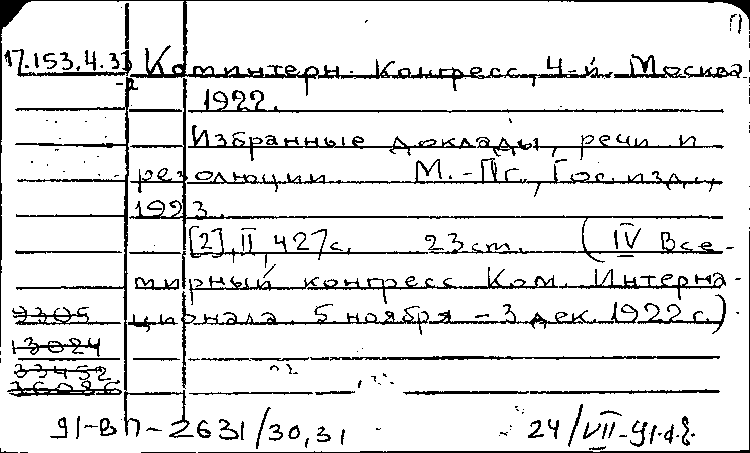 П
17.153.4.33 Коминтерн. Конгресс, 4-й. Москва
-2 1922.
Избранные доклады, речи и
резолюции. М.-Пг., Гос. изд.,
1923.
[2], II, 427с. 23 ст. (IV Все-
мирный конгресс Ком. Интерна-
ционала. 5 ноября – 3 дек. 1922 г.)
9305
13024
33452
36036
91-ВП-2631/30,31 24/VII-91.